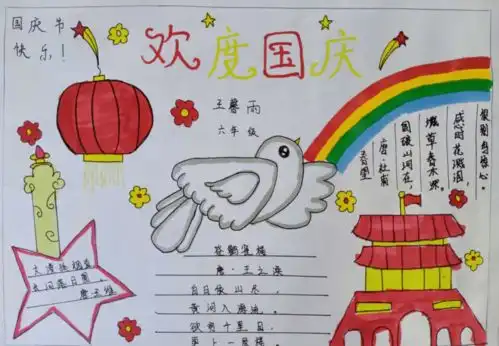 国庆节
快乐!
欢度国庆
王馨雨
六年级
春望
唐·杜甫
国破山河在,
城草春木深。
感时花溅泪,
恨别鸟惊心。
大漠孤烟直
长河落日圆
唐王维
登鹳雀楼
唐·王之涣
白日依山尽,
黄河入海流。
欲穷千里目,
更上一层楼。